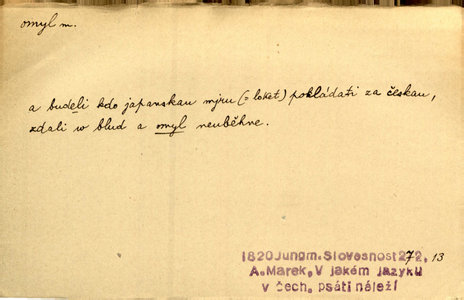 omyl m.
a budeli kdo japanskau mjru (= loket) pokládati za českau,
zdali w blud a omyl neuběhne.
1820 Jungm. Slovesnost 272, 13
A. Marek, V jakém jazyku
v čech. psáti náleží